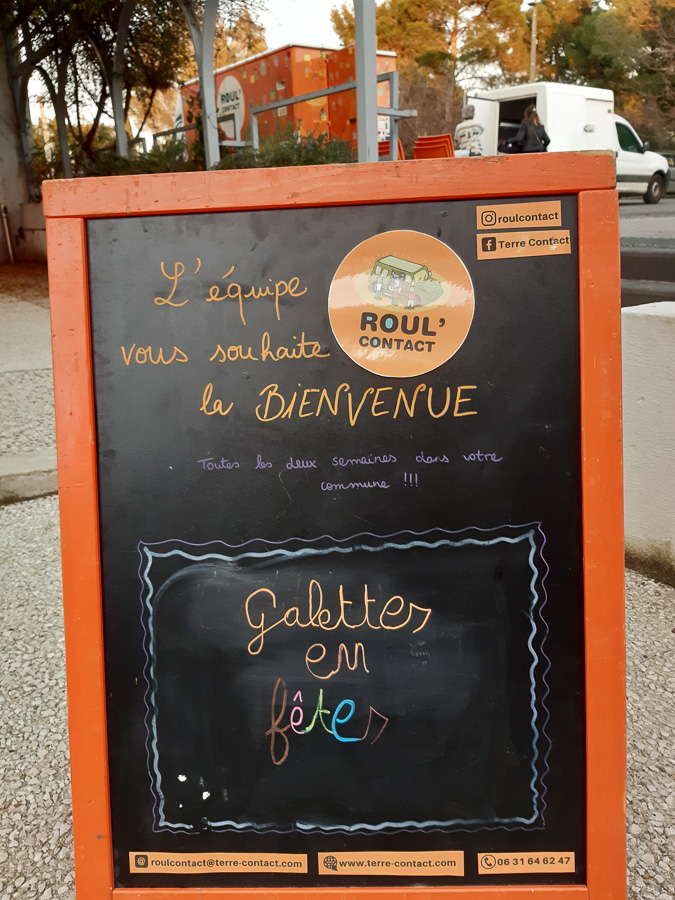 ROUL'
CONTACT
roulcontact
Terre Contact
L'équipe
vous souhaite
la BIENVENUE
ROUL'
CONTACT
Toutes les deux semaines dans votre
commune !!!
Galettes
en
fêtes
roulcontact@terre-contact.com
www.terre-contact.com
06 31 64 62 47